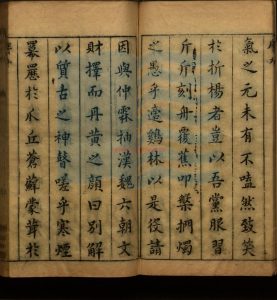 氣之元未有不嗑然發笑
於折楊者豈以吾黨服習
斤斤刻舟覆蕉叩槃捫燭
之愚乎邃鷄林以是役請
因與仲霖抽漢魏六朝文
財擇而丹黄之顏曰別解
以質古之神瞽嗟乎寒煙
羃歷於瓜丘蒼蘚蒙茸於